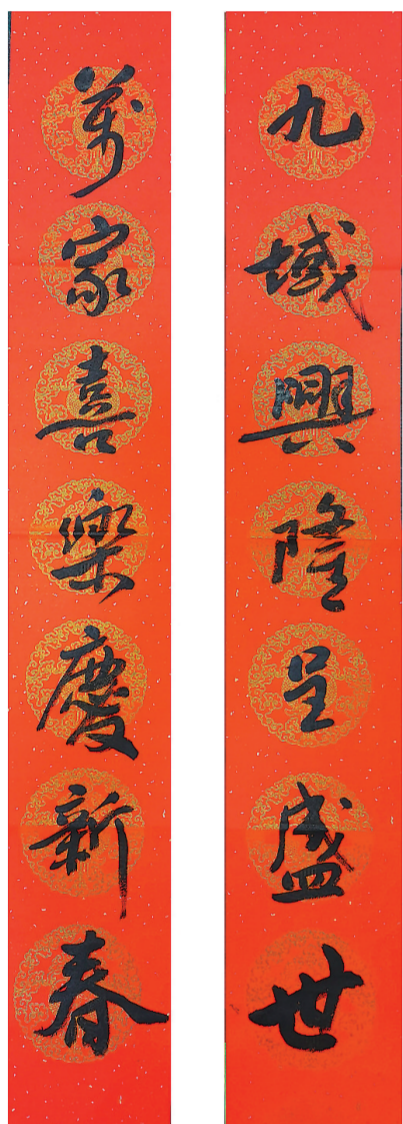 九域興隆呈盛世
萬家喜樂慶新春